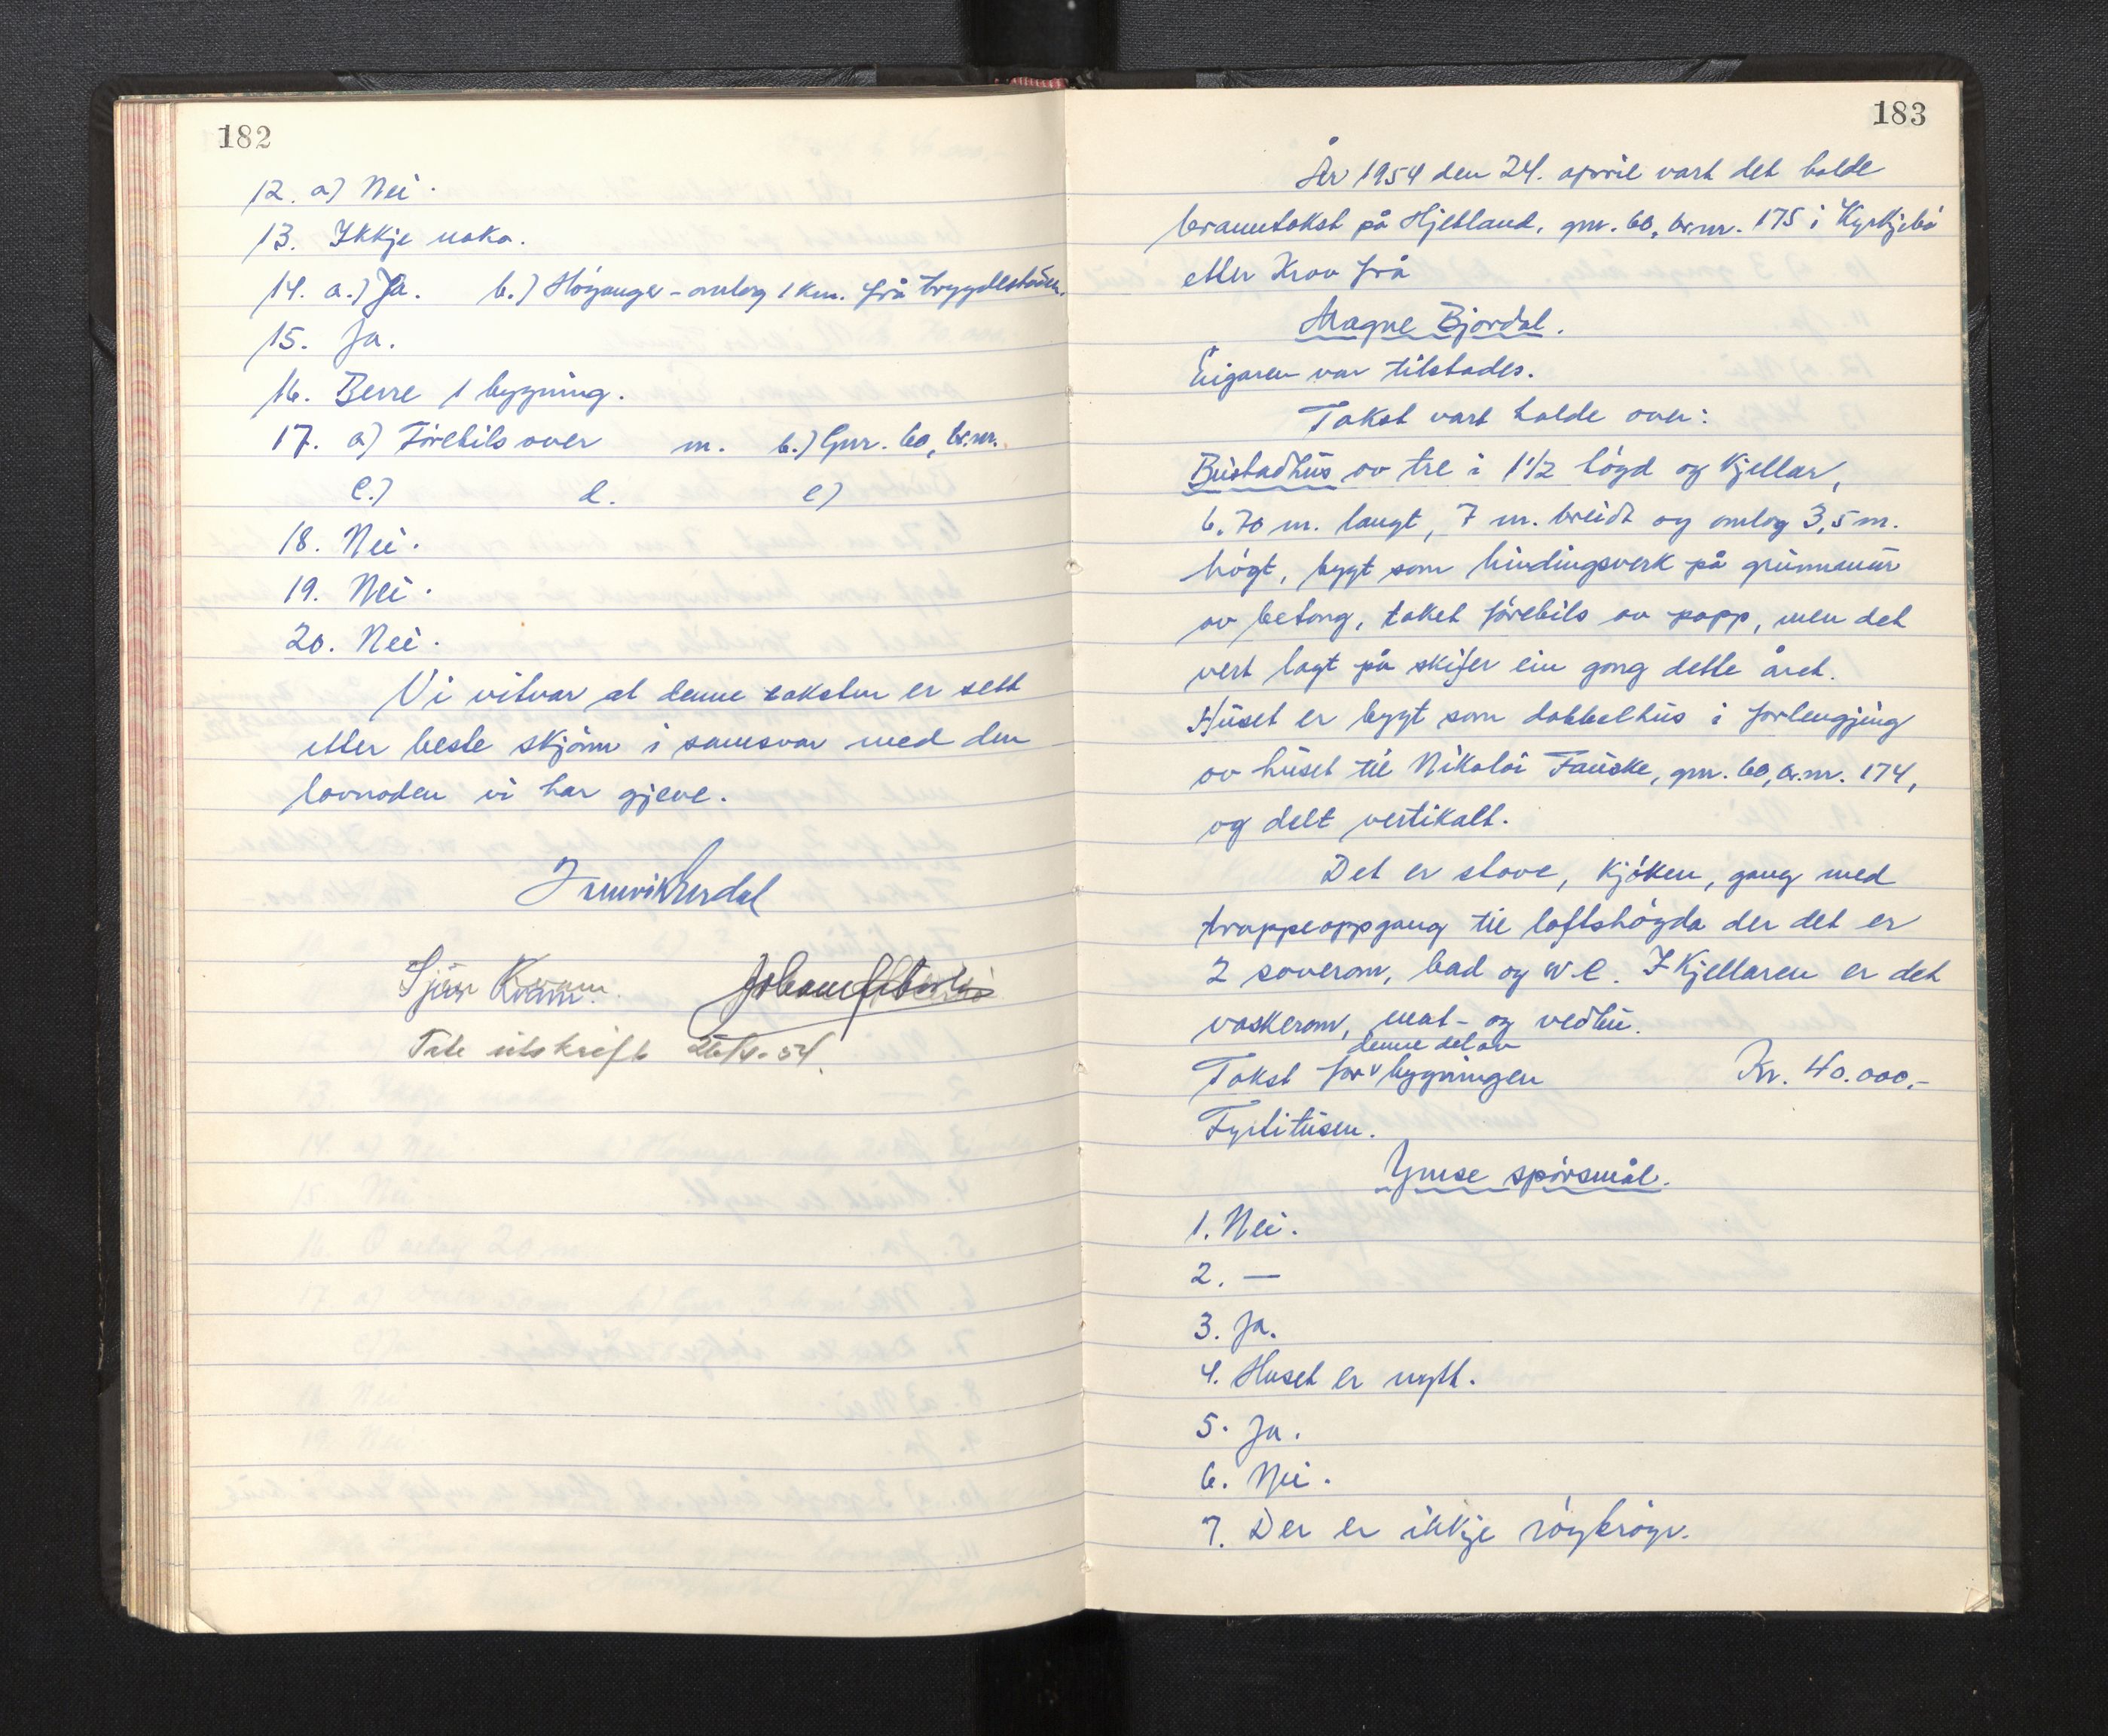 182
12. a) Nei.
13. Ikkje noko.
14. a.) Ja. b.) Høyanger - omlag 1 km. frå trygdestaden.
15. Ja.
16. Berre 1 bygning.
17. a) Førebils over m. b.) Gnr. 60, br.nr.
c.) d. e)
18. Nei.
19. Nei.
20. Nei.
Vi vitnar at denne taksten er sett
etter beste skjønn i samsvar med den
lovnaden vi har gjeve.
Kvam.
Tatt utskrift 26/4-54.
183
År 1954 den 24. april vart det halde
branntakst på Hjetland, gnr. 60, br.nr. 175 i Kyrkjebø
etter krav frå
Magne Bjordal.
Eigaren var tilstades.
Takst vart halde over:
Bustadhus av tre i 1 1/2 høgd og kjellar,
6.70 m. langt, 7 m. breidt og omlag 3,5 m.
høgt, bygt som bindingsverk på grunnmur
av betong, taket førebils av papp, men det
vert lagt på skifer ein gong dette året.
Huset er bygt som dobbelthus i forlengjing
av huset til Nikolai Fauske, gnr. 60, br.nr. 174,
og delt vertikalt.
Det er stove, kjøken, gang med
trappeoppgang til loftshøgda der det er
2 soverom, bad og w.c. I kjellaren er det
vaskerom, mat- og vedbu.
denne del av
Takst for v bygningen Kr. 40.000,-
Fyrtitusen.
Ymse spørsmål.
1. Nei.
2. —
3. Ja.
4. Huset er nytt.
5. Ja.
6. Nei.
7. Der er ikkje røykrøyr.